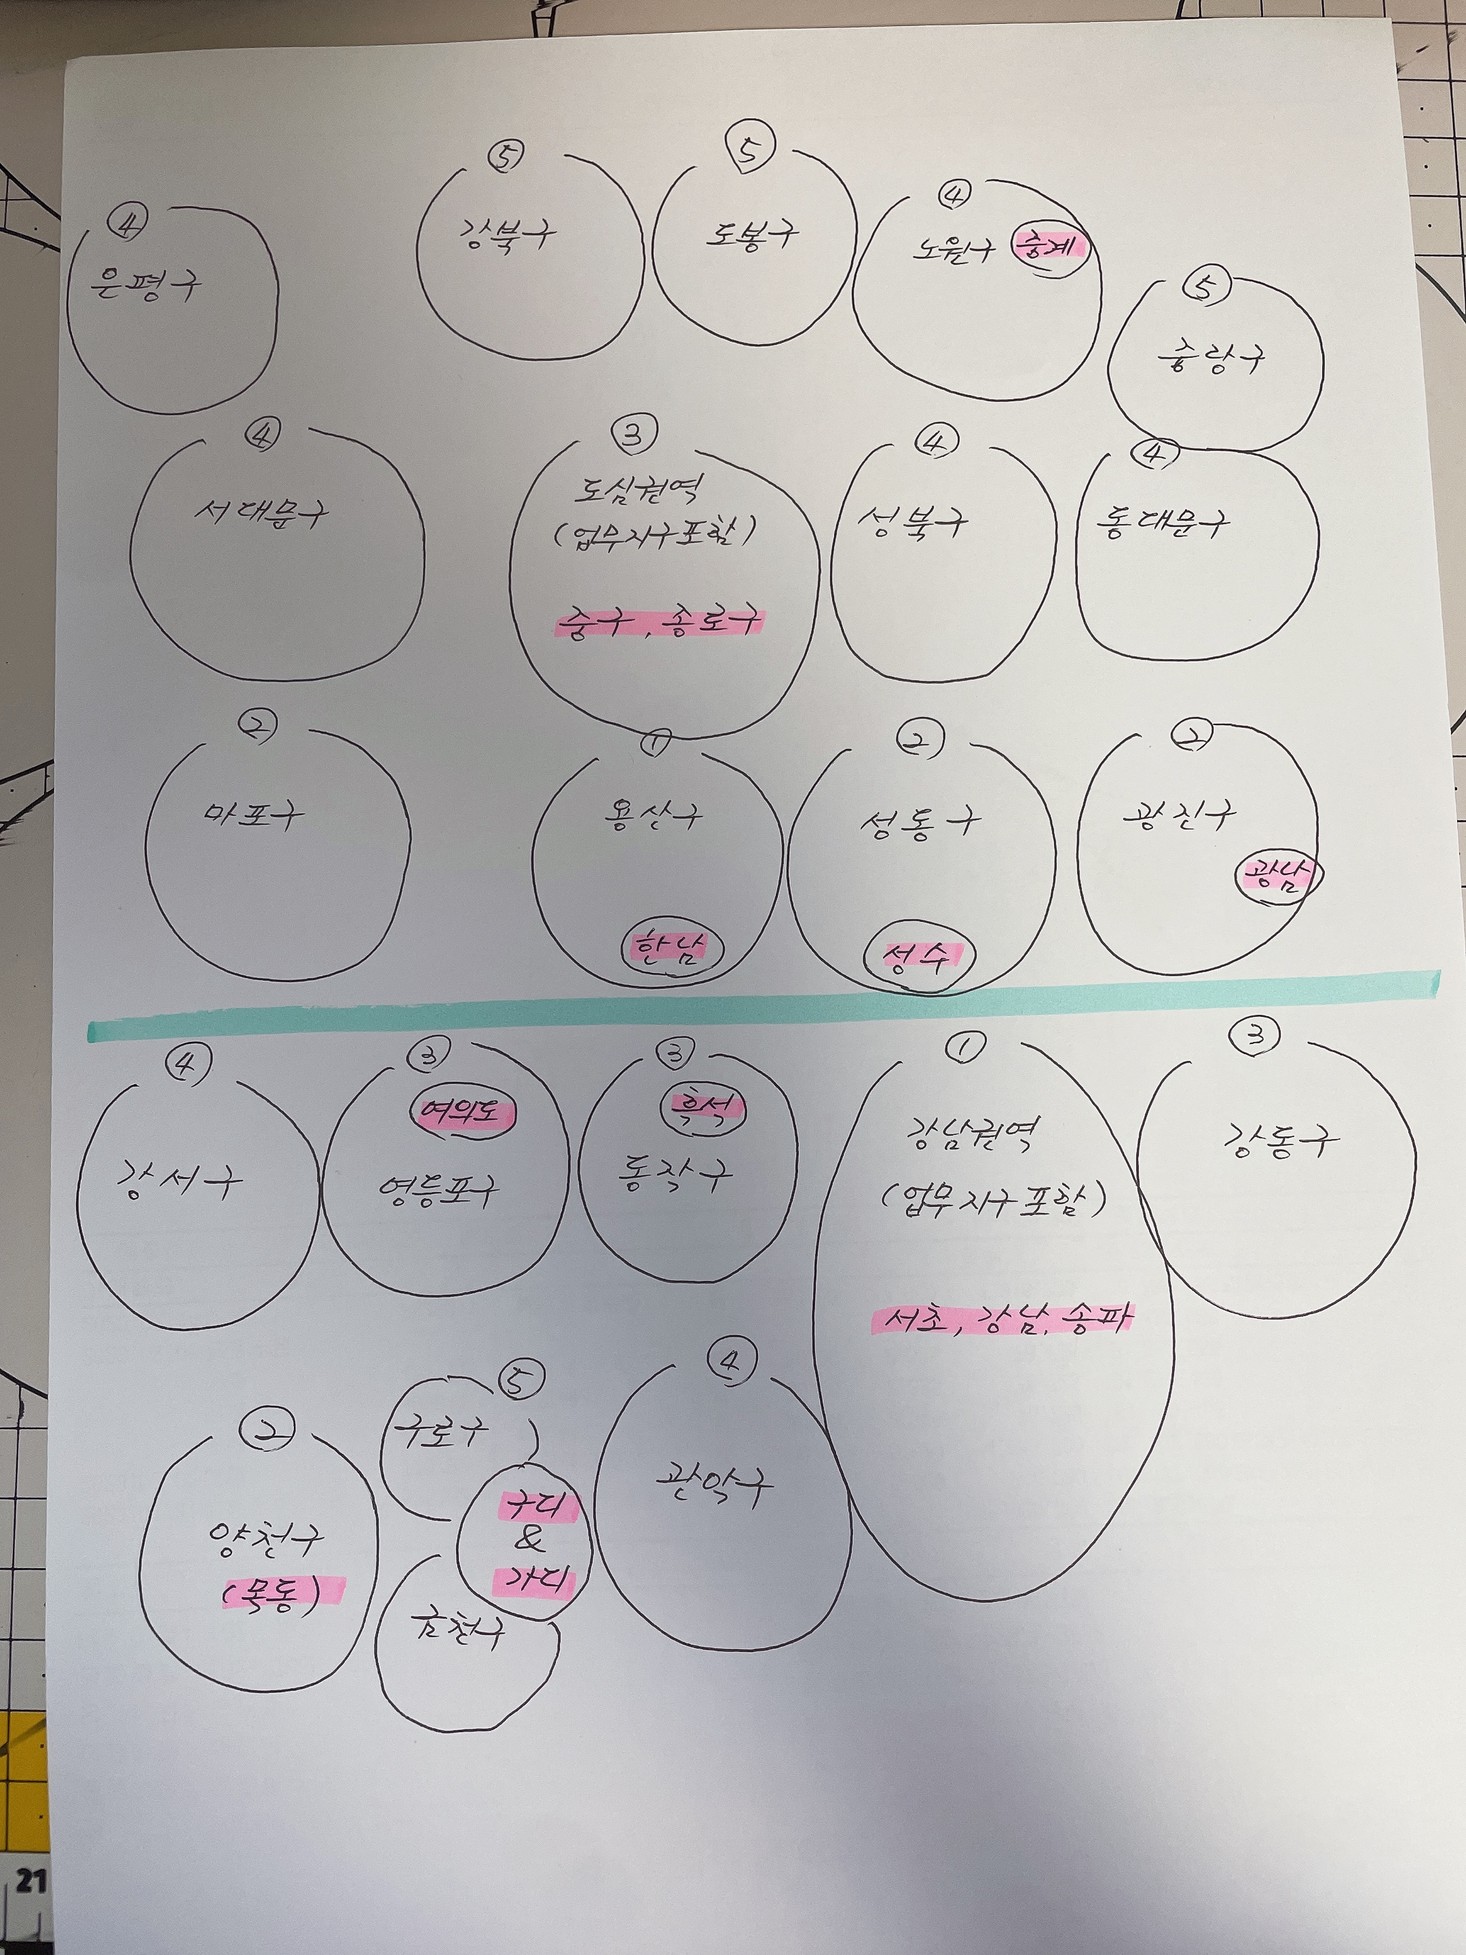 ⑤
강북구
⑤
도봉구
④
노원구 중계
④
은평구
⑤
중랑구
④
서대문구
③
도심권역
(업무지구포함)
중구, 종로구
④
성북구
④
동대문구
②
마포구
①
용산구
한남
②
성동구
성수
②
광진구
광남
④
강서구
③
여의도
영등포구
③
흑석
동작구
①
강남권역
(업무지구포함)
서초, 강남, 송파
③
강동구
②
양천구
(목동)
⑤
구로구
구디
&
가디
금천구
④
관악구
21